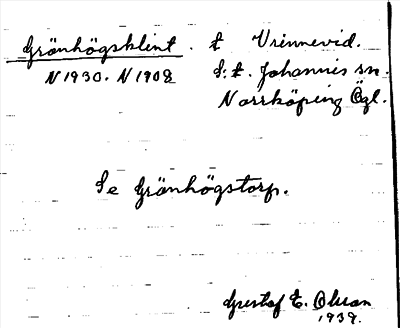 Grönhögsklint. t Vrinnevid.
N 1930. N 1908 S:t. Johannis sn.
Norrköping Ögl.
Se Grönhögstorp.
Gustaf E. Olsson
1939.